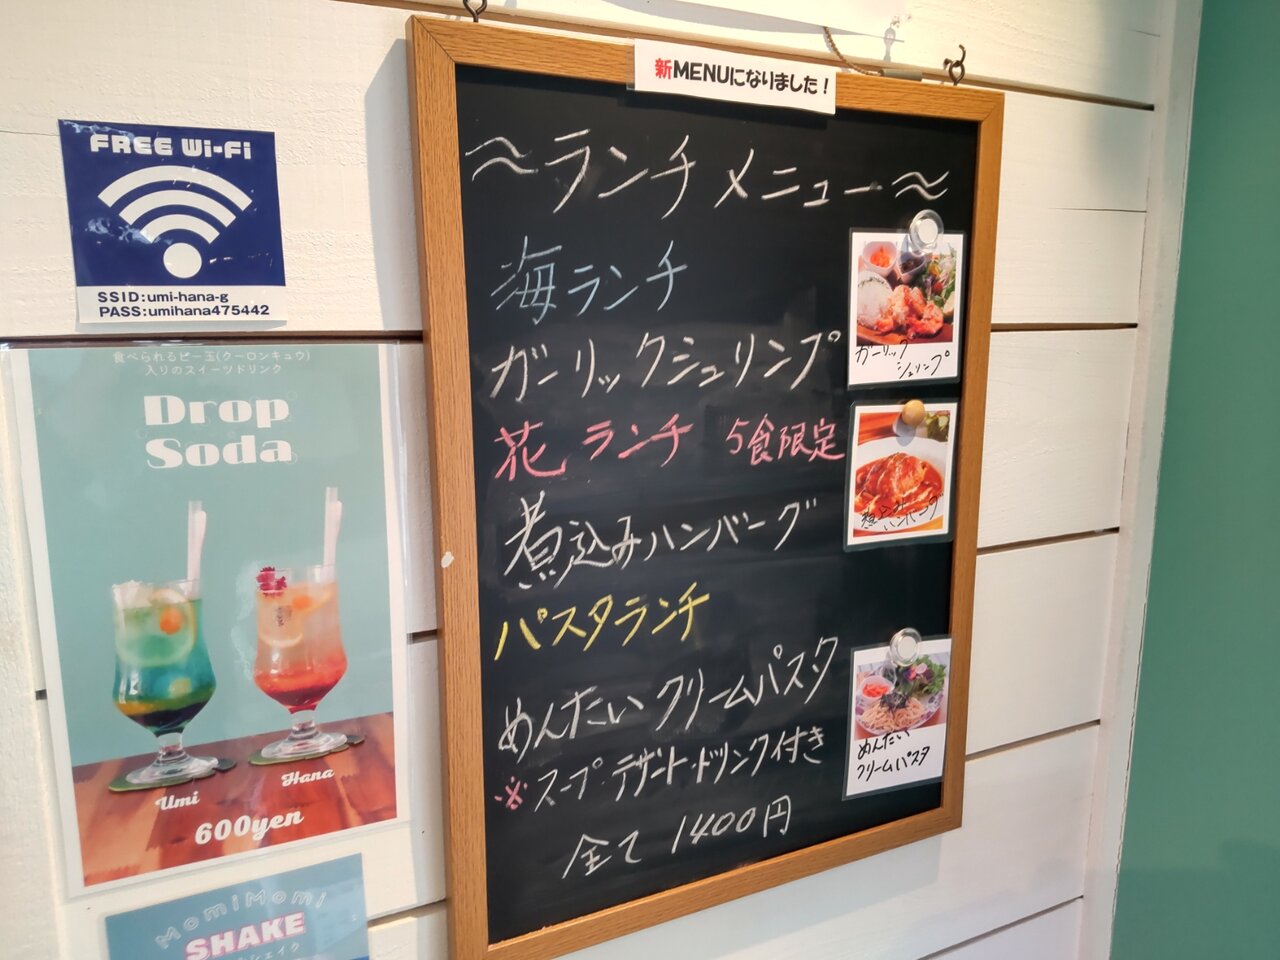 新MENUになりました!
~ランチメニュー~
海ランチ
ガーリックシュリンプ
花ランチ 5食限定
煮込みハンバーグ
パスタランチ
めんたいクリームパスタ
※スープ・デザート・ドリンク付き
全て 1400円
ガーリック
シュリンプ
煮込み
ハンバーグ
めんたい
クリームパスタ
FREE Wi-Fi
SSID:umi-hana-g
PASS:umihana475442
食べられるビー玉(クーロンキュウ)
入りのスイーツドリンク
Drop
Soda
Umi
Hana
600yen
MomiMomi
SHAKE
シェイク